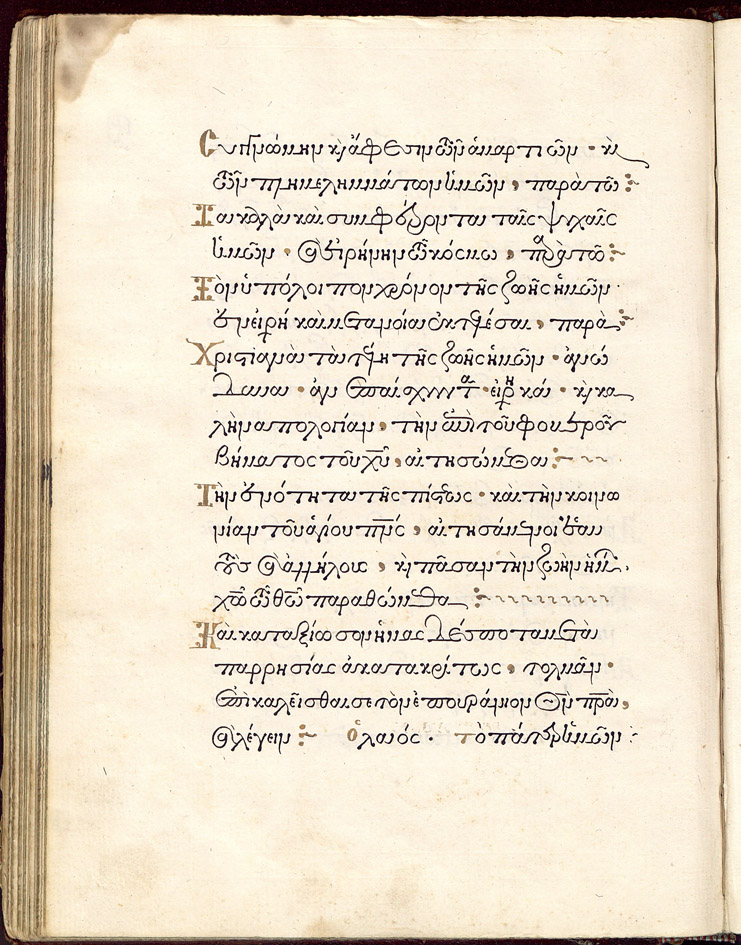 Συγγνώμην κ(αὶ) ἄφεσιν τῶν ἁμαρτιῶν · κ(αὶ)
τῶν πλημελημμάτων ἡμῶν , παρὰ τοῦ :~
Τὰ καλὰ καὶ συμφέροντα ταῖς ψυχαῖς
ἡμῶν · καὶ εἰρήνην τῶ κόσμω , πα τοῦ :~
Τὸν ὑπόλοιπον χρόνον τῆς ζωῆς ἡμῶν ·
ἐν εἰρή καὶ μετανοία ἐκτελέσαι , παρὰ :~
Χριστιανὰ τὰ τέλη τῆς ζωῆς ἡμῶν · ἀνώ
δυνα · ἀνεπαίσχυντα · εἰρηνικά · κ(αὶ) κα
λὴν ἀπολογίαν , τὴν ἐπὶ τοῦ φοβεροῦ
βήματος τοῦ χυ , αἰτησώμεθα :~
Τὴν ἑνότητα τῆς πίστεως · καὶ τὴν κοινω
νίαν τοῦ ἁγίου πνς , αἰτησάμενοι ἑαυ
τοὺς καὶ ἀλλήλους , κ(αὶ) πᾶσαν τὴν ζωὴν ἡμ .
χω τῶ θω παραθώμεθα :~
Καὶ καταξίωσον ἡμᾶς δέσποτα μετὰ
παρρησίας ἀκατακρίτως , τολμᾶν ·
ἐπικαλεῖσθαι σε τὸν ἐπουράνιον θν πρα ,
καὶ λέγειν :~ ὁ λαιός · τὸ πάτερ ἡμῶν :~